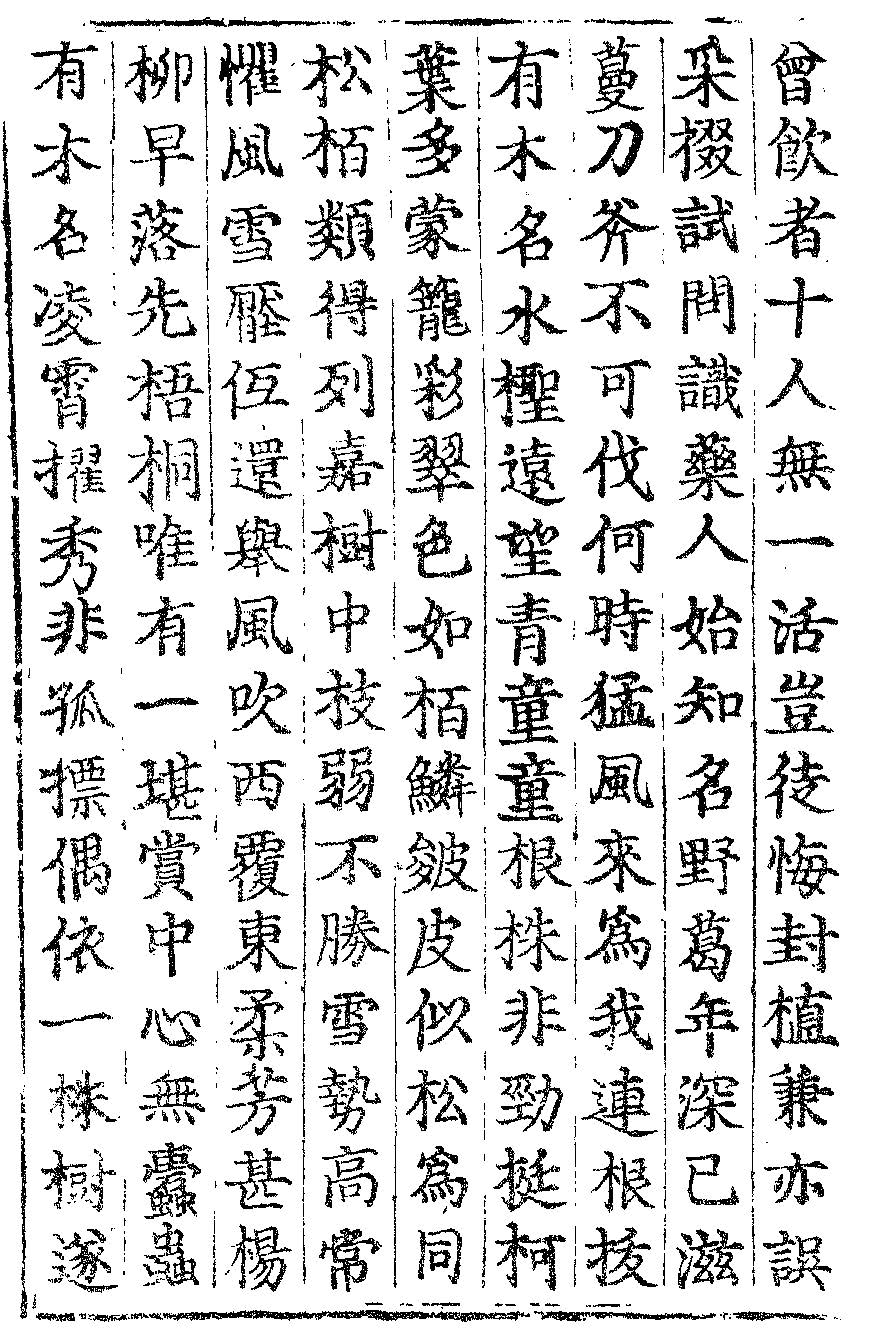 曾飲者十人無一活豈徒悔封植兼亦誤
采掇試問識藥人始知名野葛年深已滋
蔓刀斧不可伐何時猛風來爲我連根拔
有木名水檉遠望青童童根株非勁挺柯
葉多蒙籠彩翠色如栢鱗皴皮似松爲同
松栢類得列嘉樹中枝弱不勝雪勢高常
懼風雪壓低還舉風吹西覆東柔芳甚楊
柳早落先梧桐唯有一堪賞中心無蠹蟲
有木名凌霄擢秀非孤標偶依一株樹遂